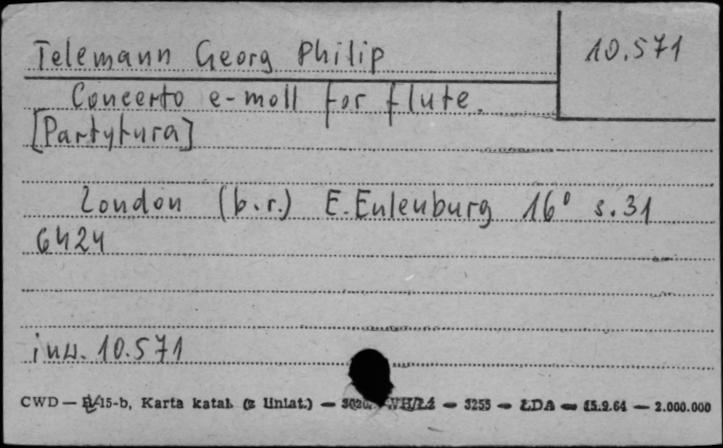 Telemann Georg Philip
10.571
Concerto e-moll for flute.
[Partytura]
London (b.r.) E. Eulenburg 16° s. 31
6424
inw. 10.571
CWD — 15-b, Karta katal. (z liniat.) — — 3255 — ŁDA — 15.9.64 — 2.000.000